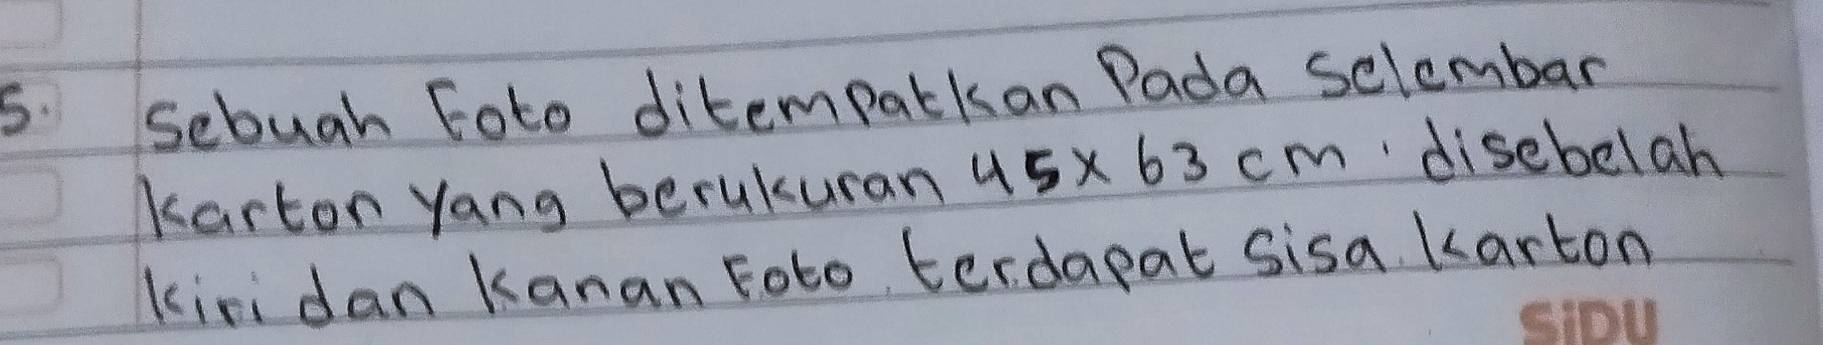 5. Sebuah Foto ditempatkan Pada Selembar
Karton yang berukuran 45 x 63 cm. disebelah
Kiri dan Kanan Foto terdapat sisa Karton
SiDU